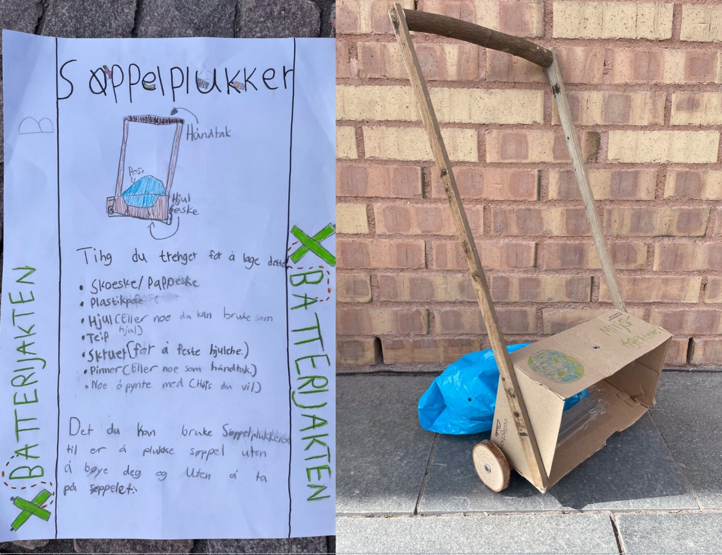 Søppelplukker
Håndtak
Pose
Hjul
eske
Ting du trenger for å lage dette
• Skoeske/Pappeske
• Plastikpose
• Hjul(Eller noe du kan bruke som hjul)
• Teip
• Skruer(for å feste hjulene.)
• Pinner(Eller noe som håndtak)
• Noe å pynte med (Hvis du vil)
Det du kan bruke Søppelplukkeren
til er å plukke søppel uten
å bøye deg og Uten å ta
på søppelet.
BATTERIJAKTEN
BATTERIJAKTEN